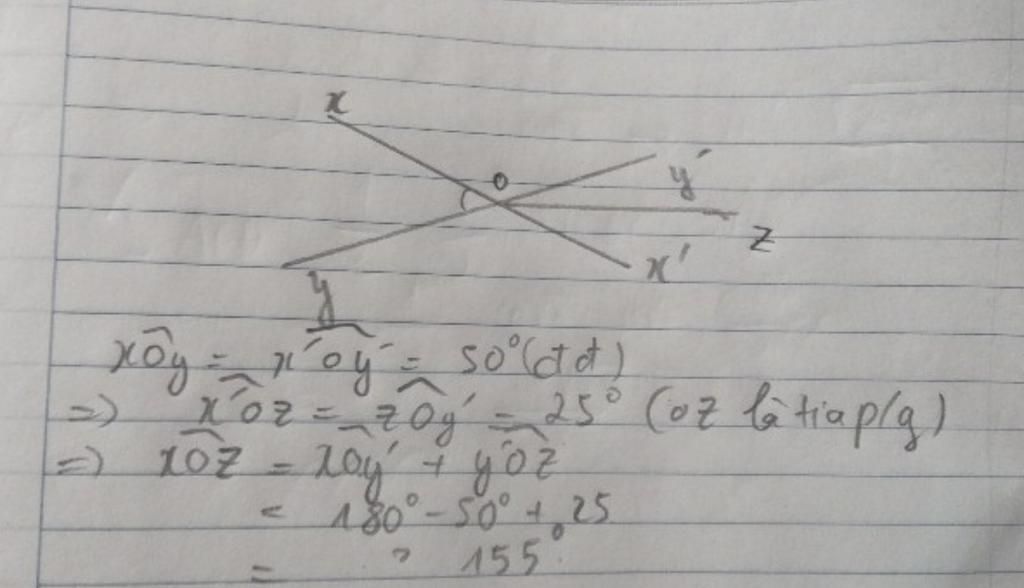 x
O
y'
z
x'
y
xÔy = x'Ôy' = 50° (đđ)
=> x'Ôz = zÔy' = 25° (oz là tia p/g)
=> xÔz = xÔy' + y'Ôz
= 180° - 50° + 25
= 155°